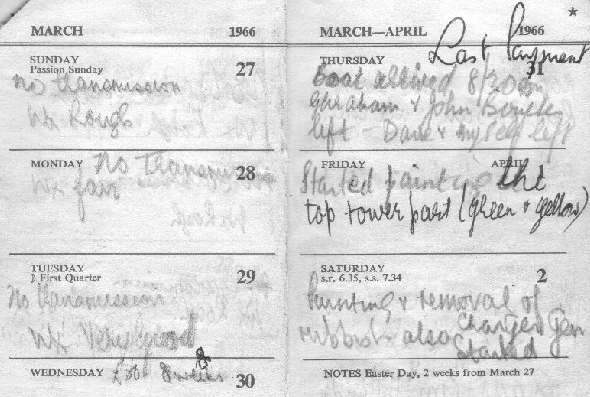 MARCH 1966
SUNDAY
Passion Sunday 27
No Transmission
Wx Rough
MONDAY 28
No Transmission
Wx fair
TUESDAY
☽ First Quarter 29
No Transmission
Wx Very good
WEDNESDAY 30
MARCH—APRIL 1966
Last Payment
THURSDAY 31
Boat arrived 8/30
Graham & John
left - Dave & myself left
FRIDAY APRIL
Started painting the
top tower part (green & yellow)
SATURDAY
s.r. 6.35, s.s. 7.34 2
Painting & removal of
rubbish also Charger Gen
Started
NOTES Easter Day, 2 weeks from March 27